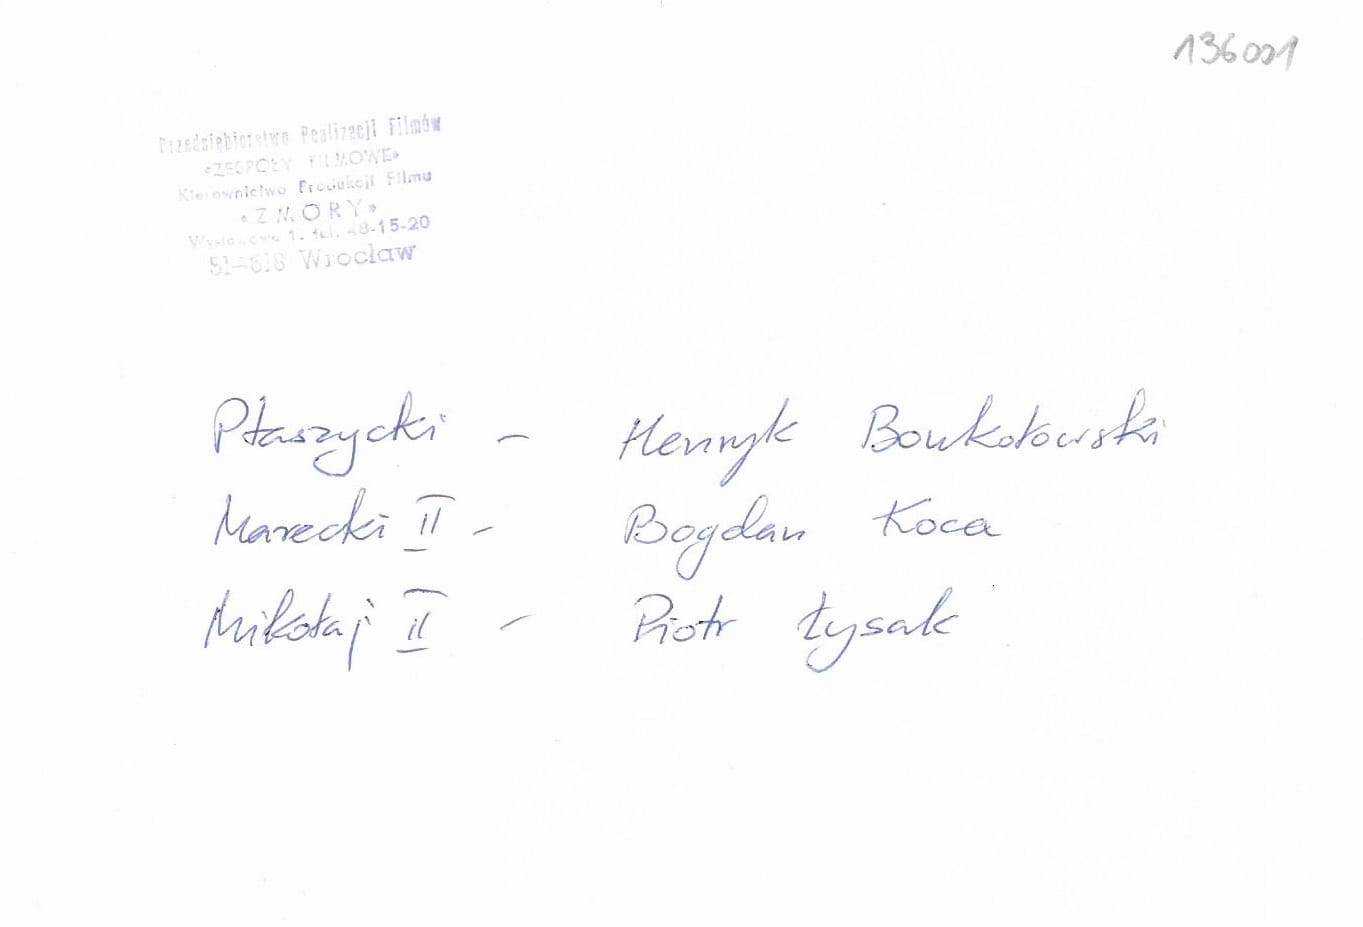 136001
Przedsiębiorstwo Realizacji Filmów
«ZESPOŁY FILMOWE»
Kierownictwo Produkcji Filmu
«ZMORY»
1. tel. 48-15-20
51-618 Wrocław
Ptaszycki - Henryk Boukołowski
Marecki II - Bogdan Koca
Mikołaj II - Piotr Łysak